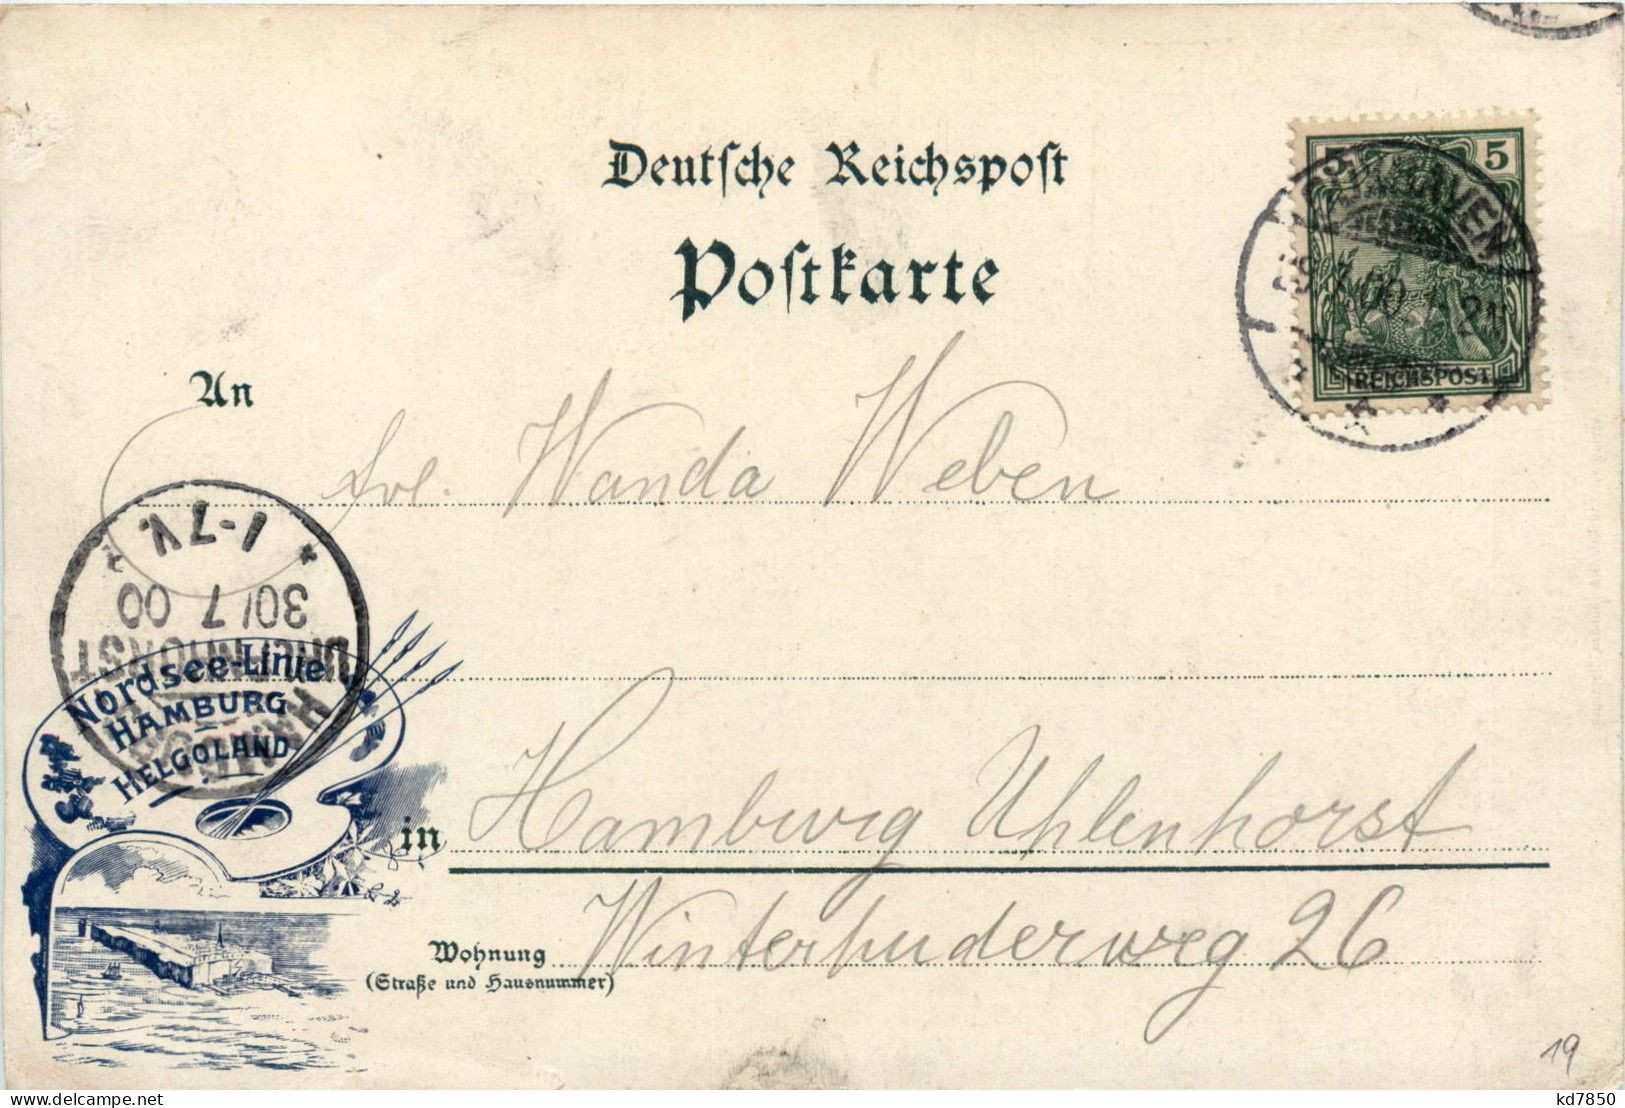 Deutsche Reichspost
Postkarte
5 5
REICHSPOST
29.7.00. 1-2N
An
Frl. Wanda Weben
1-7V.
30/7 00
UHLENHORST
HAMBURG
Nordsee-Linie
HAMBURG
HELGOLAND
in Hamburg Uhlenhorst
Wohnung Winterhuderweg 26
(Straße und Hausnummer)
19
kd7850